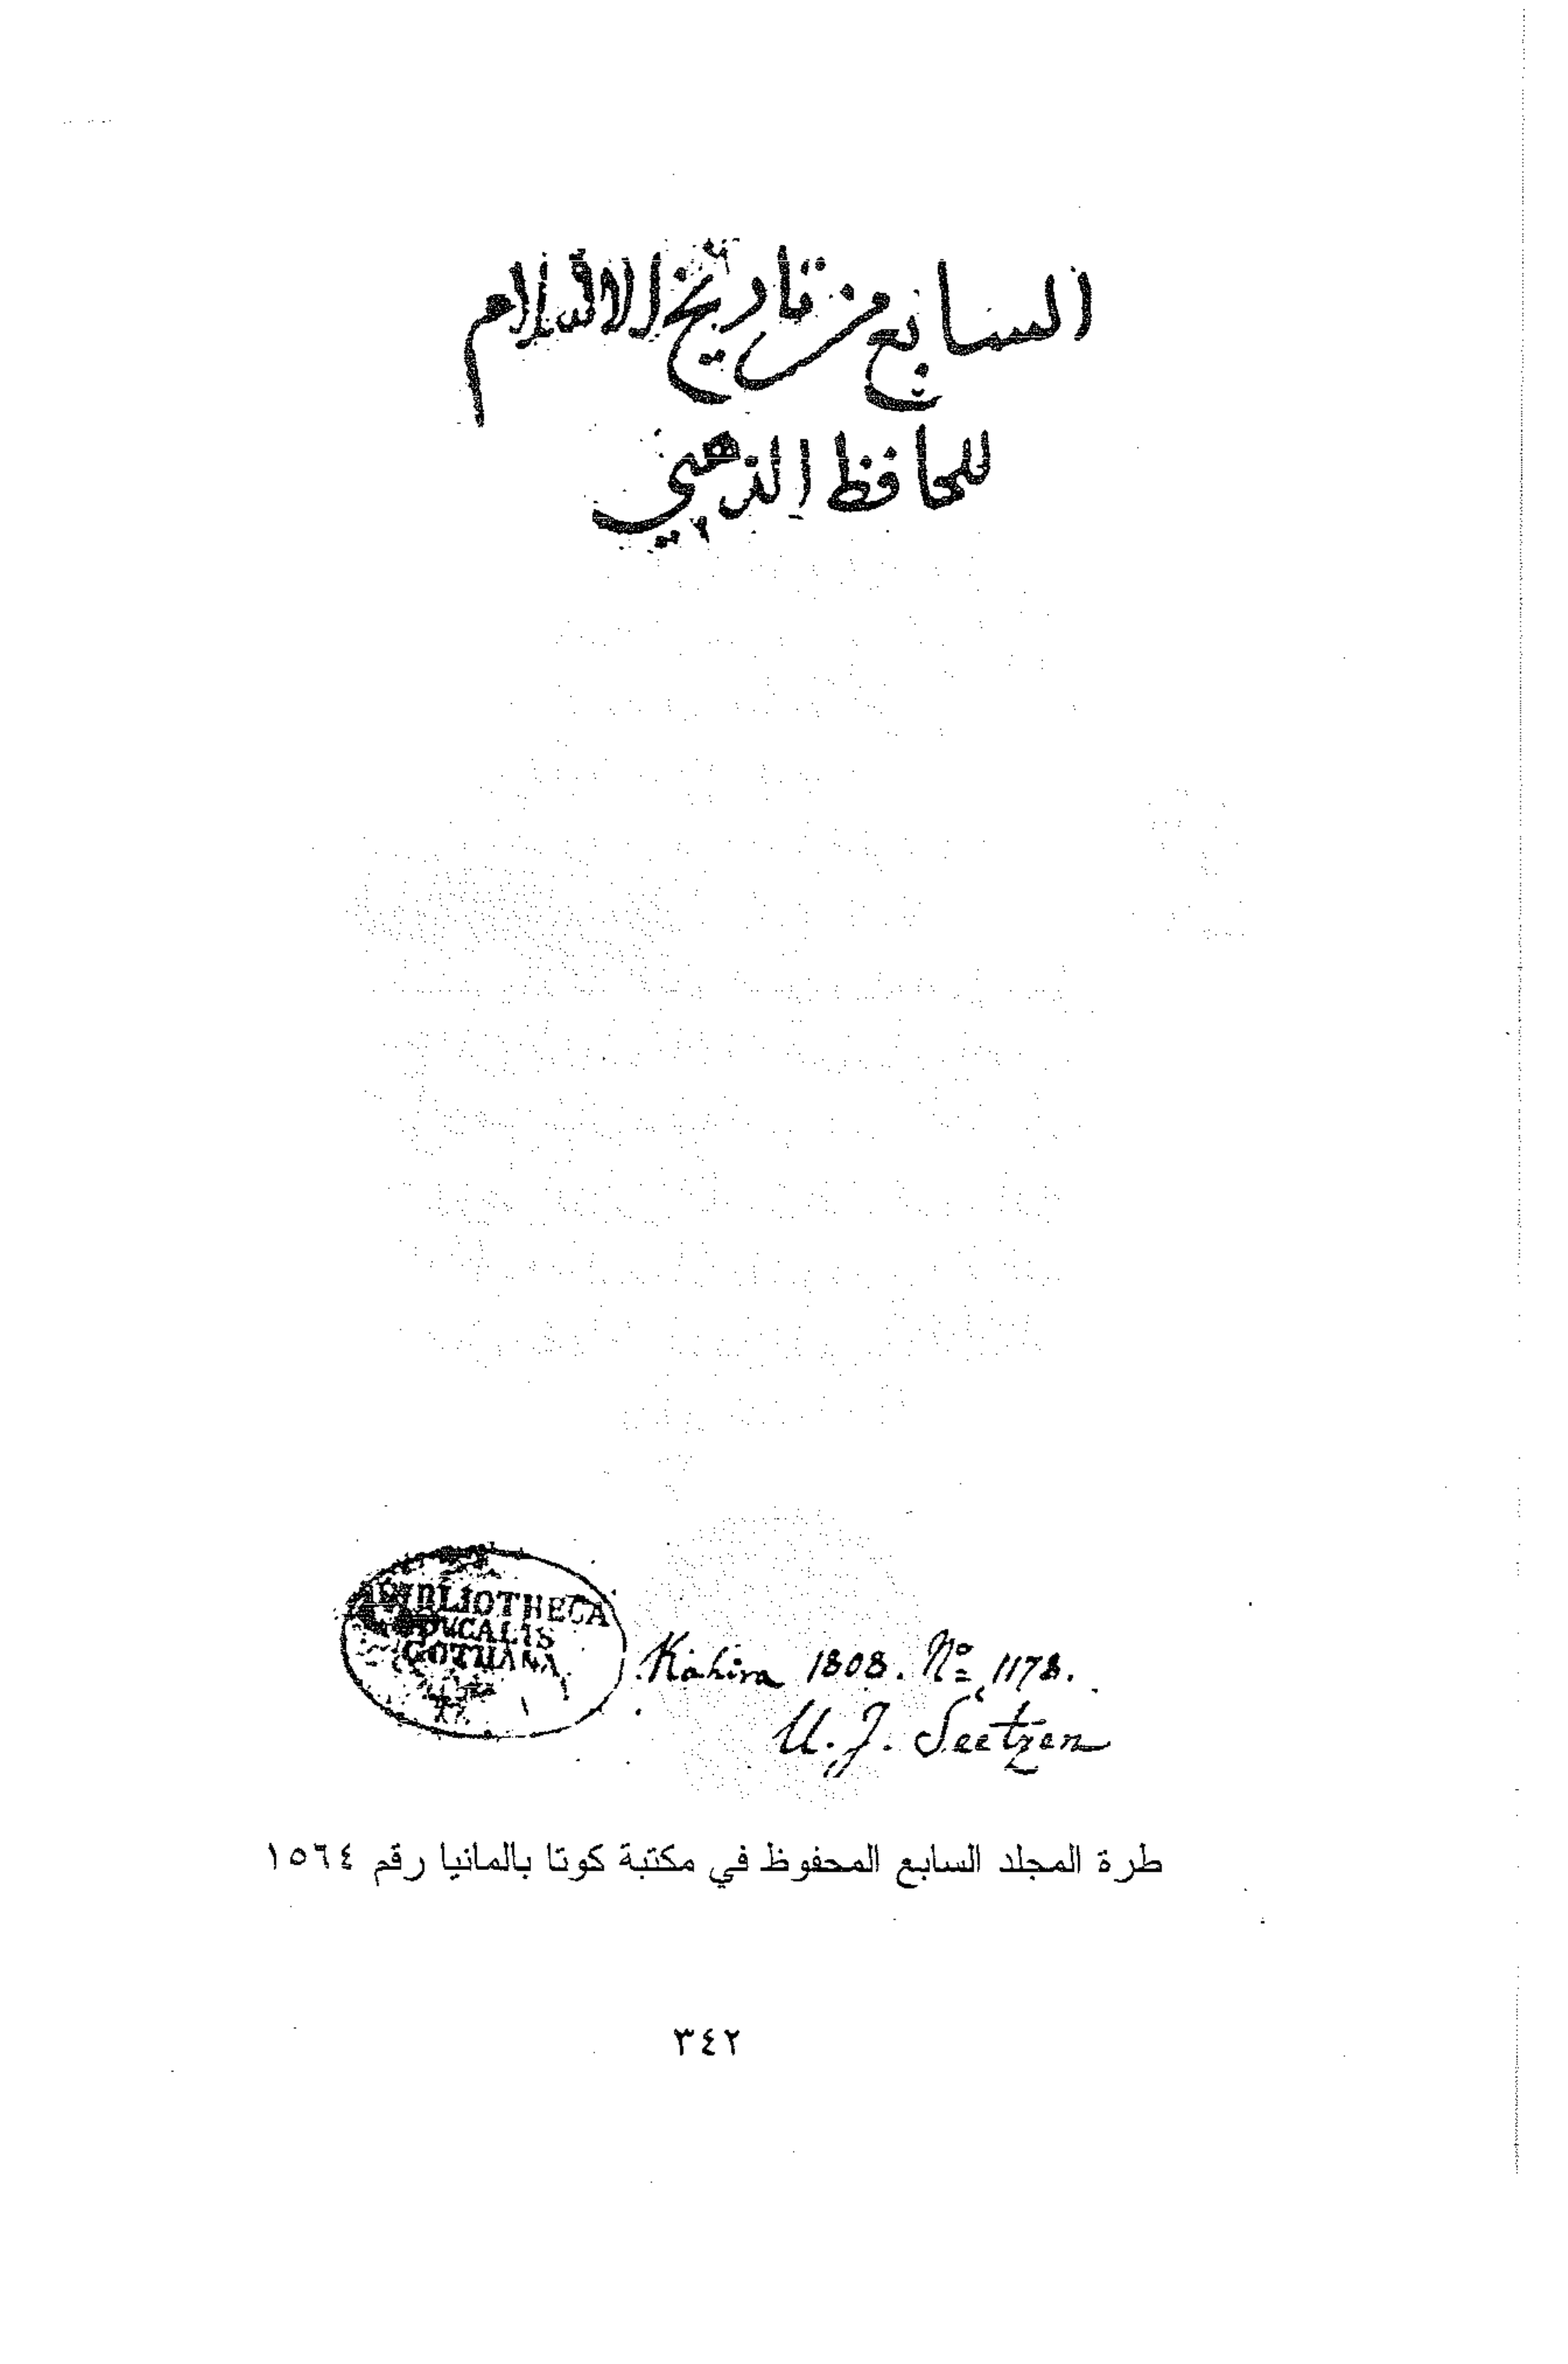 السابع من تاريخ الاسلام
للحافظ الذهبي
BIBLIOTHECA
DVCALIS
GOTHANA
Kahira 1808. No 1178.
U. J. Seetzen
طرة المجلد السابع المحفوظ في مكتبة كوتا بالمانيا رقم ١٥٦٤
٣٤٢